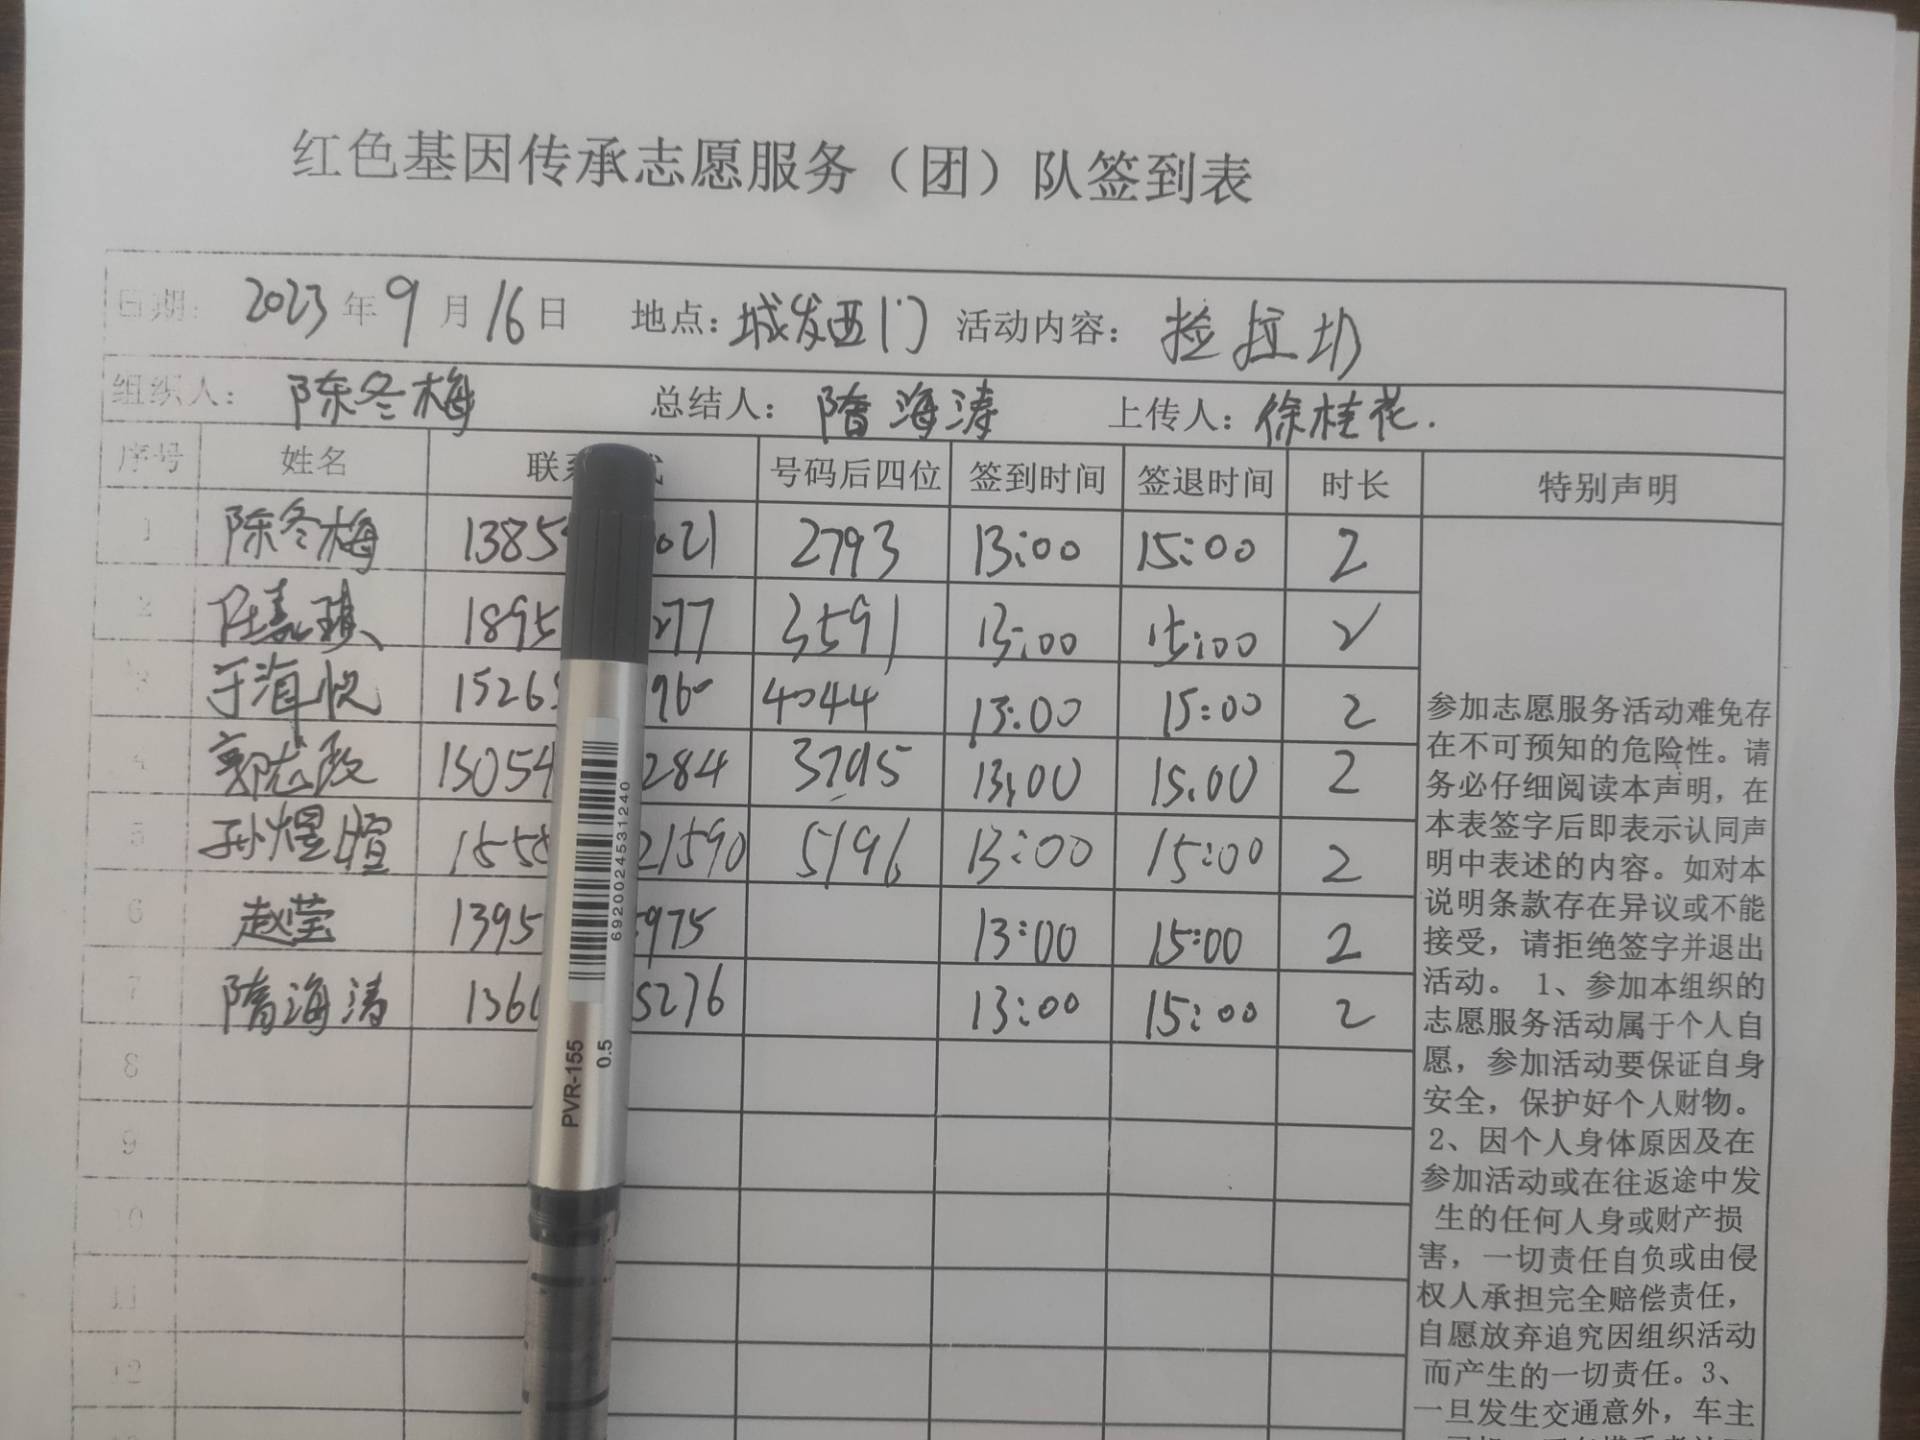 红色基因传承志愿服务（团）队签到表
日期： 2023 年 9 月 16 日 地点：城发西门 活动内容： 捡垃圾
组织人： 陈冬梅 总结人： 隋海涛 上传人：徐桂花.
序号 姓名 联系 式 号码后四位 签到时间 签退时间 时长 特别声明
1 陈冬梅 1385 021 2793 13:00 15:00 2
2 嘉琪 1895 277 3591 13:00 15:00 2
3 于海悦 1526 96 4044 13:00 15:00 2
4 郭志政 15054 284 3795 13:00 15:00 2
5 孙煜暄 1555 21590 5196 13:00 15:00 2
6 赵莹 1395 975 13:00 15:00 2
7 隋海涛 136 5276 13:00 15:00 2
8
9
10
11
12
参加志愿服务活动难免存
在不可预知的危险性。请
务必仔细阅读本声明，在
本表签字后即表示认同声
明中表述的内容。如对本
说明条款存在异议或不能
接受，请拒绝签字并退出
活动。 1、参加本组织的
志愿服务活动属于个人自
愿，参加活动要保证自身
安全，保护好个人财物。
2、因个人身体原因及在
参加活动或在往返途中发
生的任何人身或财产损
害，一切责任自负或由侵
权人承担完全赔偿责任，
自愿放弃追究因组织活动
而产生的一切责任。3、
一旦发生交通意外，车主
6920024531240
PVR-155
0.5